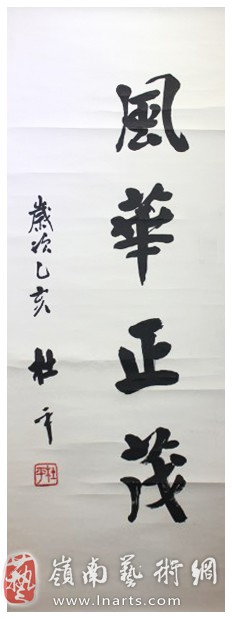 風華正茂
歲次乙亥 杜平
杜平
藝 嶺南藝術網
www.lnarts.com